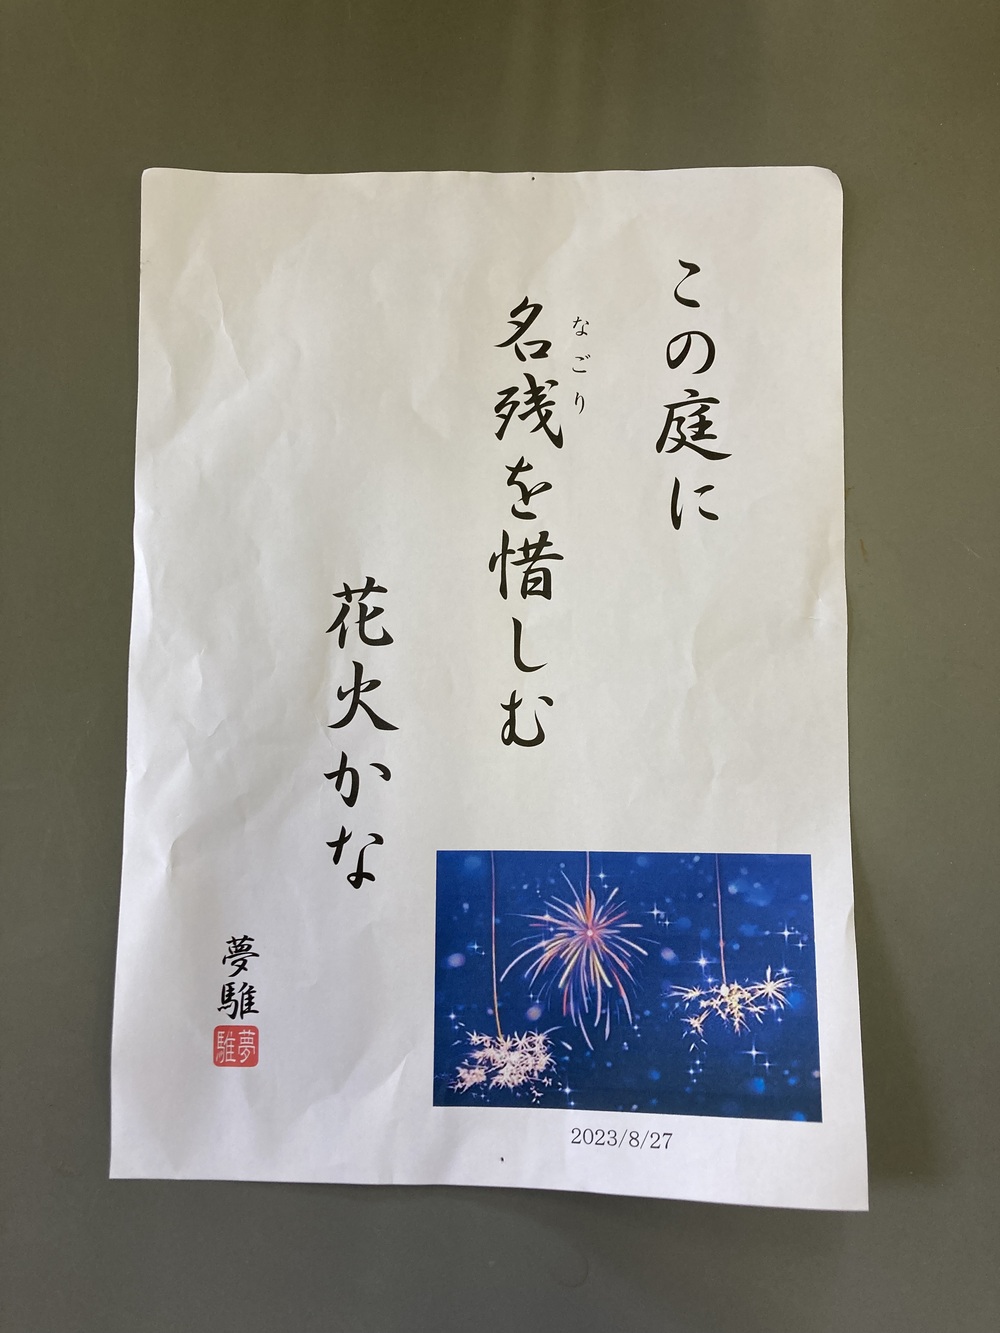 この庭に
名残を惜しむ
なごり
花火かな
夢騅
夢騅
2023/8/27